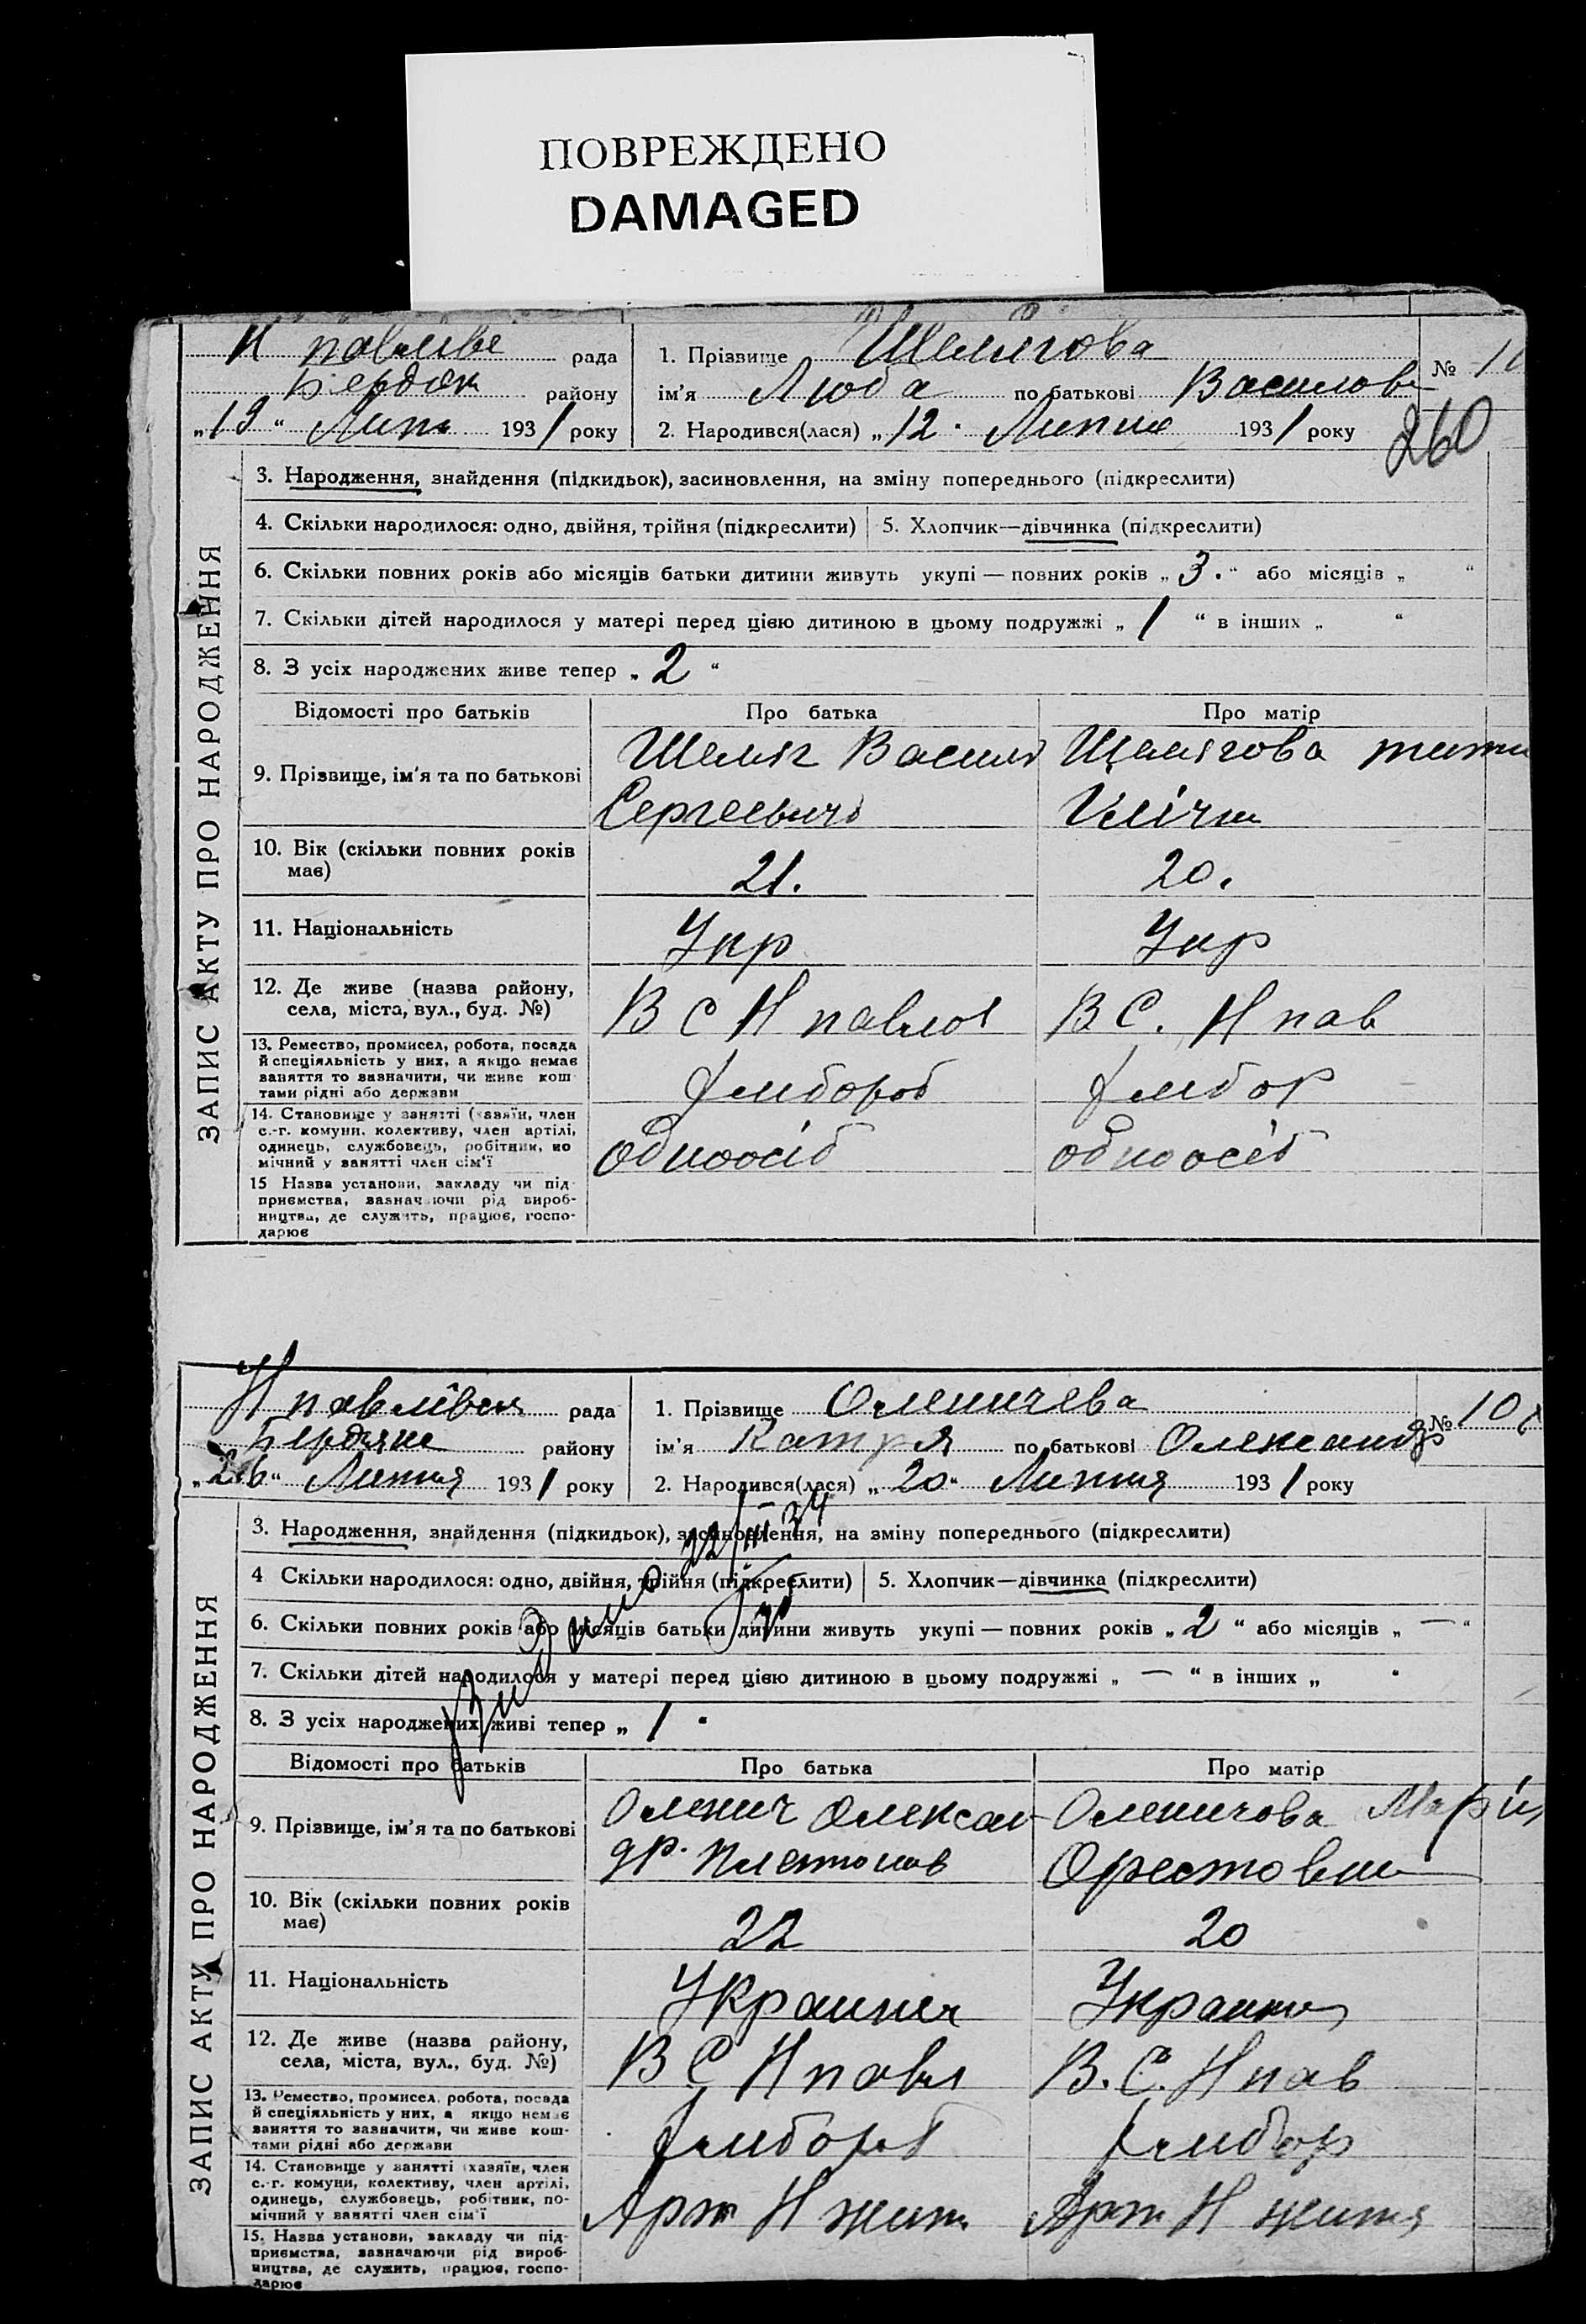 ПОВРЕЖДЕНО
DAMAGED
Н павлівс рада
Бердян району
„19“ Липн 1931 року
1. Прізвище Шелягова
ім'я Люба по батькові Василов
2. Народився(лася) „12“ Липня 1931 року
№ 10
260
ЗАПИС АКТУ ПРО НАРОДЖЕННЯ
3. Народження, знайдення (підкидьок), засиновлення, на зміну попереднього (підкреслити)
4. Скільки народилося: одно, двійня, трійня (підкреслити)
5. Хлопчик—дівчинка (підкреслити)
6. Скільки повних років або місяців батьки дитини живуть укупі — повних років „3.“ або місяців „ “
7. Скільки дітей народилося у матері перед цією дитиною в цьому подружжі „1“ в інших „ “
8. З усіх народжених живе тепер „2“
Відомості про батьків Про батька Про матір
9. Прізвище, ім'я та по батькові
Шеляг Василь
Сергеевичь
Шелягова
10. Вік (скільки повних років має)
21. 20.
11. Національність
Укр Укр
12. Де живе (назва району, села, міста, вул., буд. №)
В С Н павлов В С. Н пав
13. Ремество, промисел, робота, посада
й спеціяльність у них, а якщо немає
заняття то зазначити, чи живе кош
тами рідні або держави
хлибороб хлибор
14. Становище у занятті (хазяїн, член
с.-г. комуни, колективу, член артілі,
одинець, службовець, робітник, по
мічний у занятті член сім'ї
одноосіб одноосіб
15 Назва установи, закладу чи під
приємства, зазначаючи рід вироб-
ництва, де служить, працює, госпо-
дарює
Н павлівся рада
Бердянс району
„26“ Липня 1931 року
1. Прізвище Оленичева
ім'я Катря по батькові Олександр
2. Народився(лася) „20“ Липня 1931 року
№ 10
ЗАПИС АКТУ ПРО НАРОДЖЕННЯ
3. Народження, знайдення (підкидьок), засиновлення, на зміну попереднього (підкреслити)
4 Скільки народилося: одно, двійня, трійня (підкреслити)
5. Хлопчик—дівчинка (підкреслити)
6. Скільки повних років або місяців батьки дитини живуть укупі — повних років „2“ або місяців „—“
7. Скільки дітей народилося у матері перед цією дитиною в цьому подружжі „—“ в інших „ “
8. З усіх народжених живі тепер „1“
Видано 22/III 34
Відомості про батьків Про батька Про матір
9. Прізвище, ім'я та по батькові
Оленич Олексан
др. Платонов
Оленичова Марія
Орестовна
10. Вік (скільки повних років має)
22 20
11. Національність
Украинец Украинка
12. Де живе (назва району, села, міста, вул., буд. №)
В С Н павл В. С. Н пав
13. Ремество, промисел, робота, посада
й спеціяльність у них, а якщо немає
заняття то зазначити, чи живе кош-
тами рідні або держави
хлибороб хлибор
14. Становище у занятті (хазяїн, член
с.-г. комуни, колективу, член артілі,
одинець, службовець, робітник, по-
мічний у занятті член сім'ї
Арт Н жит Арт Н житя
15. Назва установи, закладу чи під-
приємства, зазначаючи рід вироб-
ництва, де служить, працює, госпо-
дарює